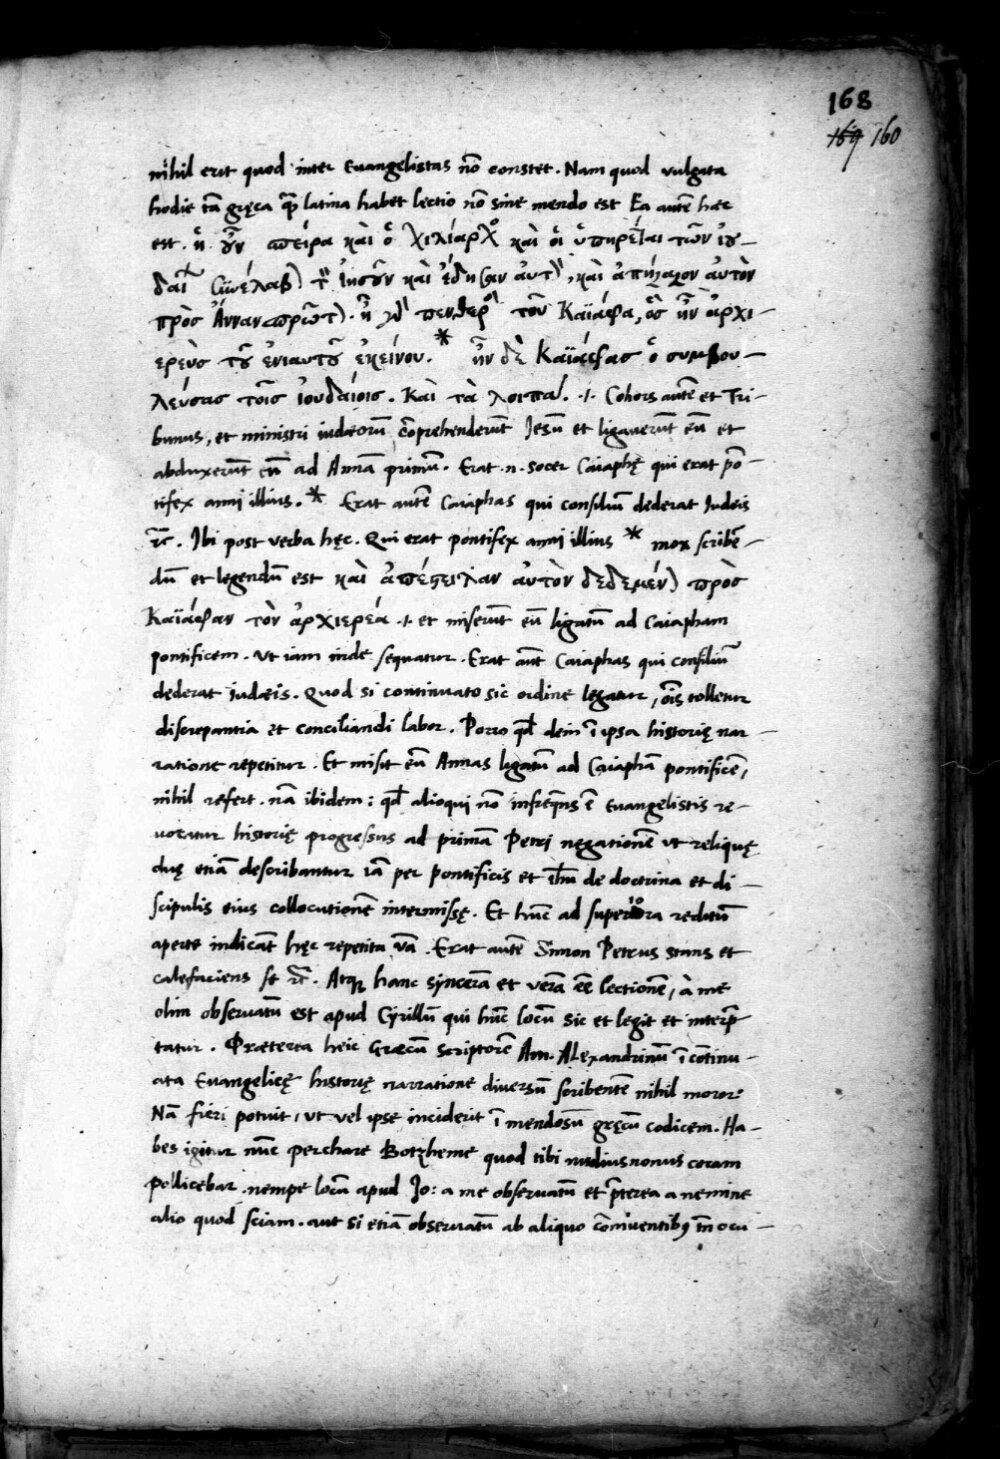 168
169 160
nihil erit quod inter Euangelistas nō constet. Nam quod vulgata
hodie tā gręca quā latina habet lectio nō sine mendo est Ea autē hæc
est. ἡ οὖν σπεῖρα καὶ ὁ χιλίαρχος καὶ οἱ ὑπηρέται τῶν ἰου-
δαίων συνέλαβον τὸν ἰησοῦν καὶ ἔδησαν αὐτὸν, καὶ ἀπήγαγον αὐτὸν
πρὸς Ἄνναν πρῶτον. ἦν γὰρ πενθερὸς τοῦ Καϊάφα, ὃς ἦν ἀρχι-
ερεὺς τοῦ ἐνιαυτοῦ ἐκείνου. * ἦν δὲ Καϊάφας ὁ συμβου-
λεύσας τοῖς ἰουδαίοις. Καὶ τὰ λοιπά. .i. Cohors autē et Tri-
bunus, et ministri iudæorū cōprehenderūt Jesū et ligauerūt eū et
abduxerūt eū ad Annā primū. Erat .n. socer Caiaphę qui erat pō-
tifex anni illius. * Erat autē Caiaphas qui consiliū dederat Iudęis
&c. Ibi post verba hęc. Qui erat pontifex anni illius * mox scribē-
dū et legendū est καὶ ἀπέστειλαν αὐτὸν δεδεμένον πρὸς
Καϊάφαν τὸν ἀρχιερέα .i. et miserūt eū ligatū ad Caiapham
pontificem. Vt iam inde sequatur. Erat aūt Caiaphas qui consiliū
dederat iudæis. Quod si continuato sic ordine legatur, oīs tolletur
discrepantia et conciliandi labor. Porro qd dein ī ipsa historię nar-
ratione repetitur. Et misit eū Annas ligatū ad Caiaphā pontificē,
nihil refert. nā ibidem: qd alioqui nō infreqns ē Euangelistis re-
uocatur historię progressus ad primā Petri nęgationē vt reliquę
duę etiā describantur iā per pontificis et iħm de doctrina et di-
scipulis eius collocutionē intermissę. Et hūc ad superiora reditū
aperte indicāt hęc repetita vā. Erat autē Simon Petrus stans et
calefaciens se &c. Atq hanc syncerā et verā eē lectionē, à me
olim obseruatū est apud Cyrillū qui hūc locū sic et legit et interp̄-
tatur. Præterea heic Græcū scriptorē Am. Alexandrinū ī cōtinu-
ata Euangelicę historię narratione diuersū scribentē nihil moror.
Nā fieri potuit, vt vel ipse inciderit ī mendosū gręcū codicem. Ha-
bes igitur nūc perchare Botzheme quod tibi nudiusnonus coram
pollicebar. nempe locū apud Jo: a me obseruatū et p̄terea a nemine
alio quod sciam. aut si etiā obseruatū ab aliquo cōniuentibq tm̄ ocu-